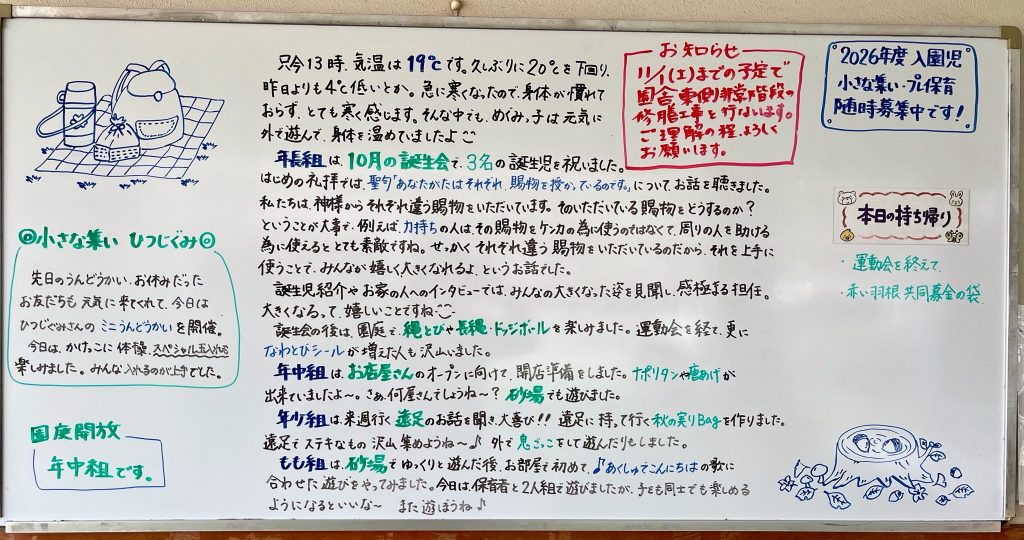 只今13時、気温は19℃です。久しぶりに20℃を下回り、
昨日よりも4℃低いとか。急に寒くなったので、身体が慣れて
おらず、とても寒く感じます。そんな中でも、めぐみっ子は元気に
外で遊んで、身体を温めていましたよ
年長組は、10月の誕生会で、3名の誕生児を祝いました。
はじめの礼拝では、聖句「あなたがたはそれぞれ、賜物を授かっているのです。」について、お話を聴きました。
私たちは、神様からそれぞれ違う賜物をいただいています。そのいただいている賜物をどうするのか?
ということが大事で、例えば、力持ちの人は、その賜物をケンカの為に使うのではなくて、周りの人を助ける
為に使えるととても素敵ですね。せっかくそれぞれ違う賜物をいただいているのだから、それを上手に
使うことで、みんなが嬉しく大きくなれるよ、というお話でした。
誕生児紹介やお家の人へのインタビューでは、みんなの大きくなった姿を見聞し、感極まる担任。
大きくなるって、嬉しいことですね
誕生会の後は、園庭で、縄とびや長縄・ドッジボールを楽しみました。運動会を経て、更に
なわとびシールが増えた人も沢山いました。
年中組は、お店屋さんのオープンに向けて、開店準備をしました。ナポリタンや唐あげが
出来ていましたよ〜。さぁ、何屋さんでしょうね〜? 砂場でも遊びました。
年少組は来週行く遠足のお話を聞き、大喜び!! 遠足に持って行く秋の実りBagを作りました。
遠足でステキなもの沢山集めようね〜♪ 外で鬼ごっこをして遊んだりもしました。
もも組は、砂場でゆっくりと遊んだ後、お部屋で初めて、♪あくしゅでこんにちはの歌に
合わせた遊びをやってみました。今日は、保育者と2人組で遊びましたが、子ども同士でも楽しめる
ようになるといいな〜 また遊ぼうね♪
小さな集い ひつじぐみ
先日のうんどうかい、お休みだった
お友だちも元気に来てくれて、今日は
ひつじぐみさんのミニうんどうかいを開催。
今日は、かけっこに体操、スペシャル玉入れを
楽しみました。みんな入れるのが上手でした。
園庭開放
年中組です。
お知らせ
11/1(土)までの予定で
園舎東側非常階段の
修脂工事を行ないます。
ご理解の程、よろしく
お願いします。
2026年度 入園児
小さな集い・プレ保育
随時募集中です!
本日の持ち帰り
・運動会を終えて
・赤い羽根共同募金の袋